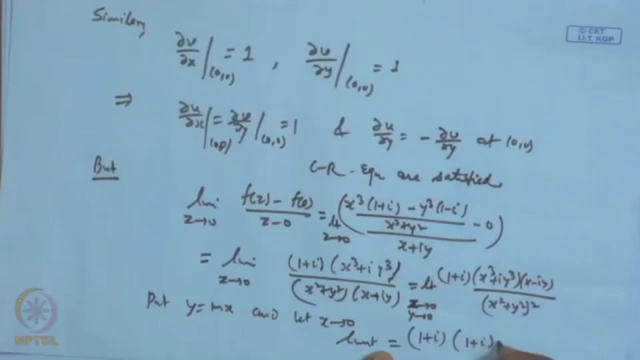 Similarly
© CET
I.I.T. KGP
∂v/∂x|(0,0) = 1 , ∂v/∂y|(0,0) = 1
⇒ ∂u/∂x|(0,0) = ∂v/∂y|(0,0) = 1 & ∂u/∂y = - ∂v/∂y at (0,0)
But C-R- Equ are satisfied
lim z→0 (f(z) - f(0))/(z-0) = lt z→0 ((x³(1+i) - y³(1-i))/(x²+y²) - 0)/(x+iy)
= lim z→0 (1+i)(x³+iy³)/((x²+y²)(x+iy)) = lt x→0 y→0 (1+i)(x³+iy³)(x-iy)/(x²+y²)²
Put y=mx and let x→0
limit = (1+i) (1+i
NPTEL